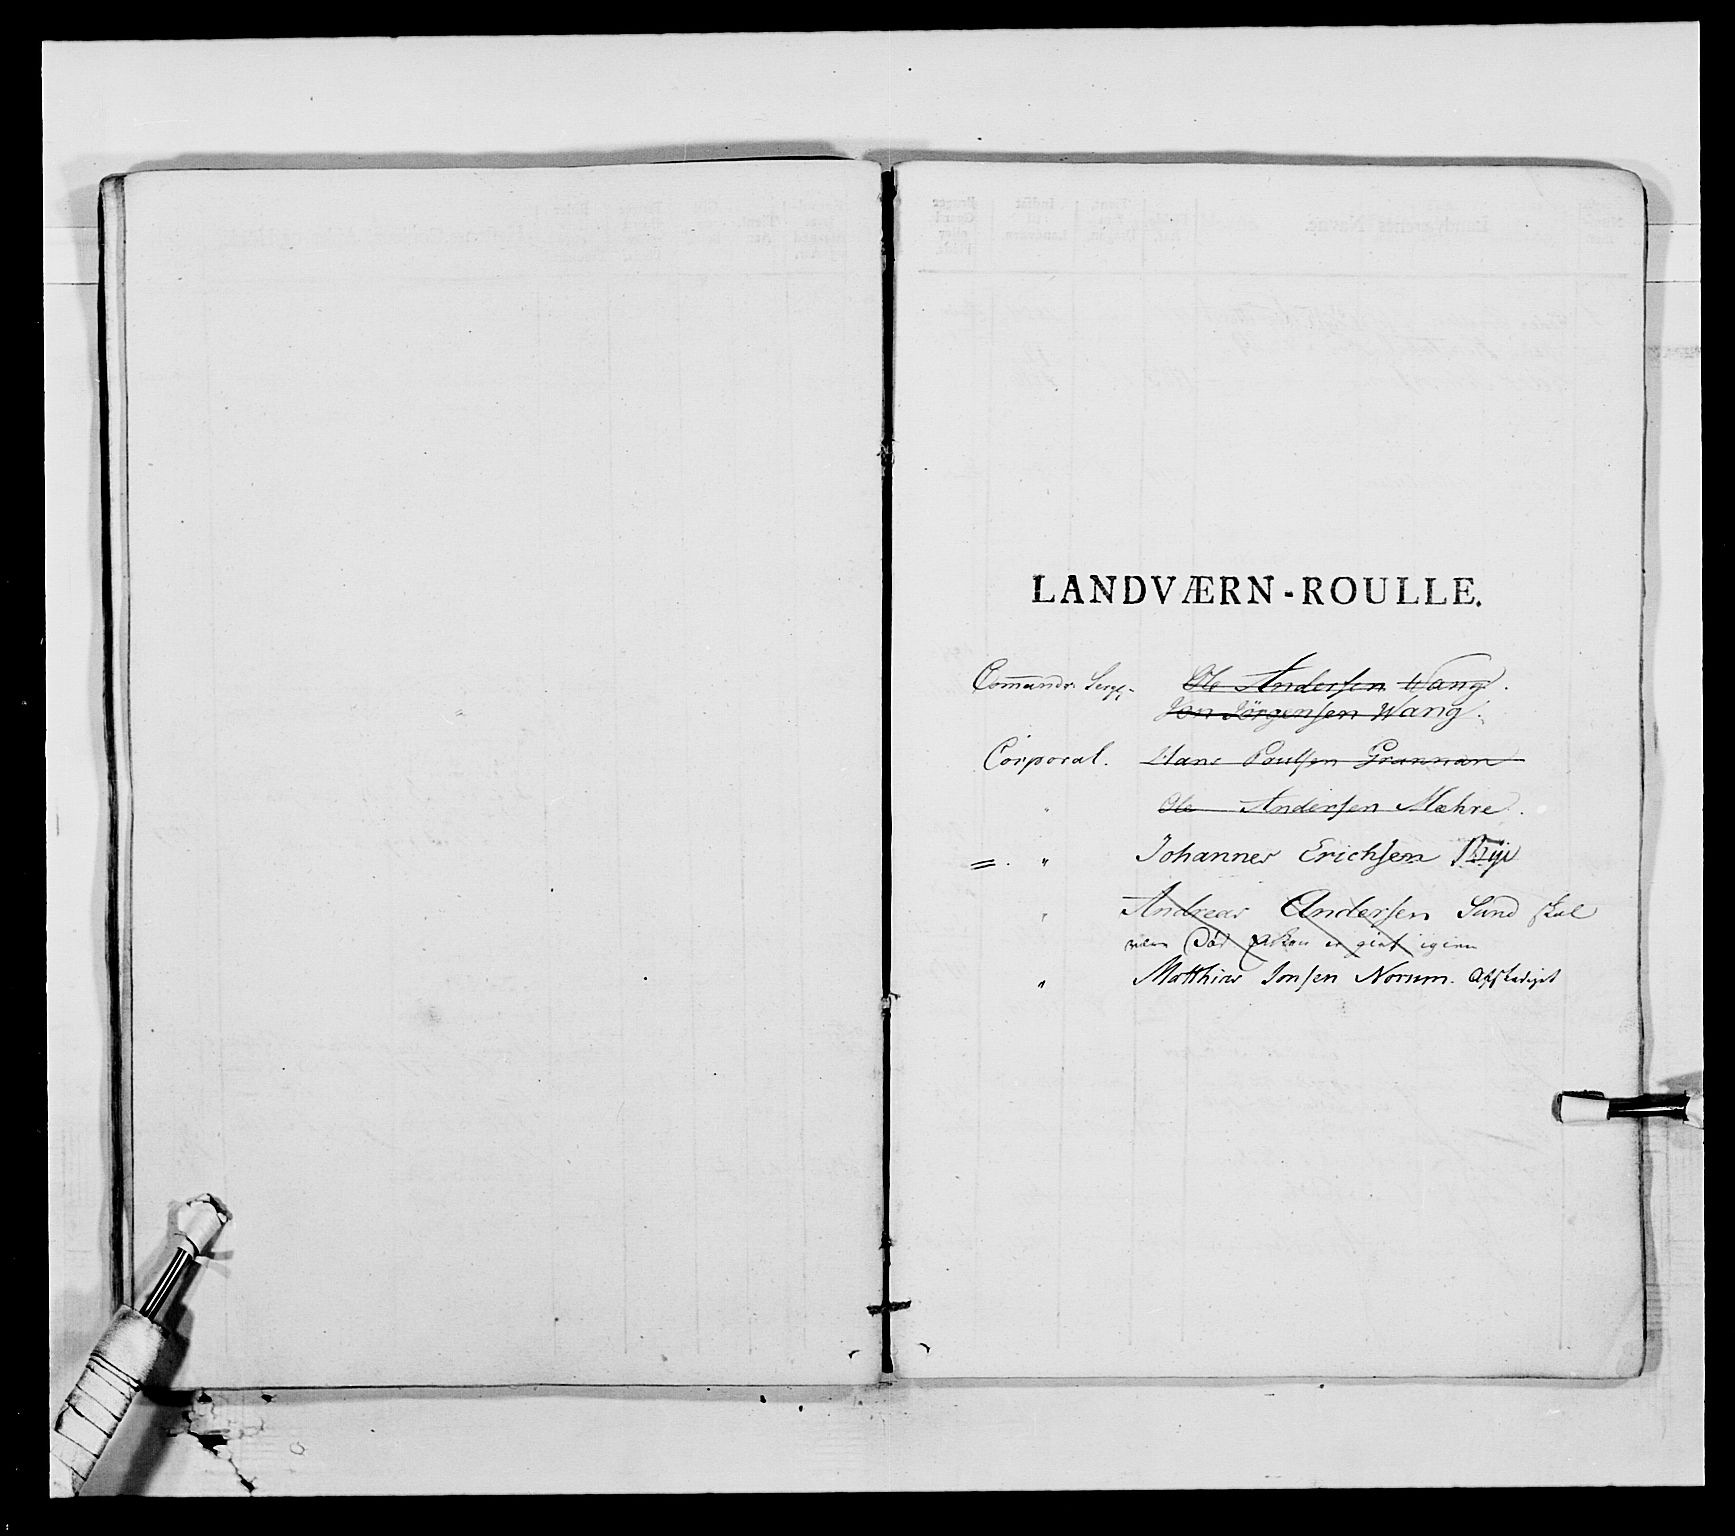 LANDVÆRN-ROULLE.
Commandr. Serg. Ole Andersen Wang.
Jon Jörgensen Wang.
Corporal. Hans Poulsen Grannan
" Ole Andersen Mæhre.
= . " Johannes Erichsen
" Andreas Andersen Sand skal
være Död er igien
" Matthias Jonsen Norum. Afskediget